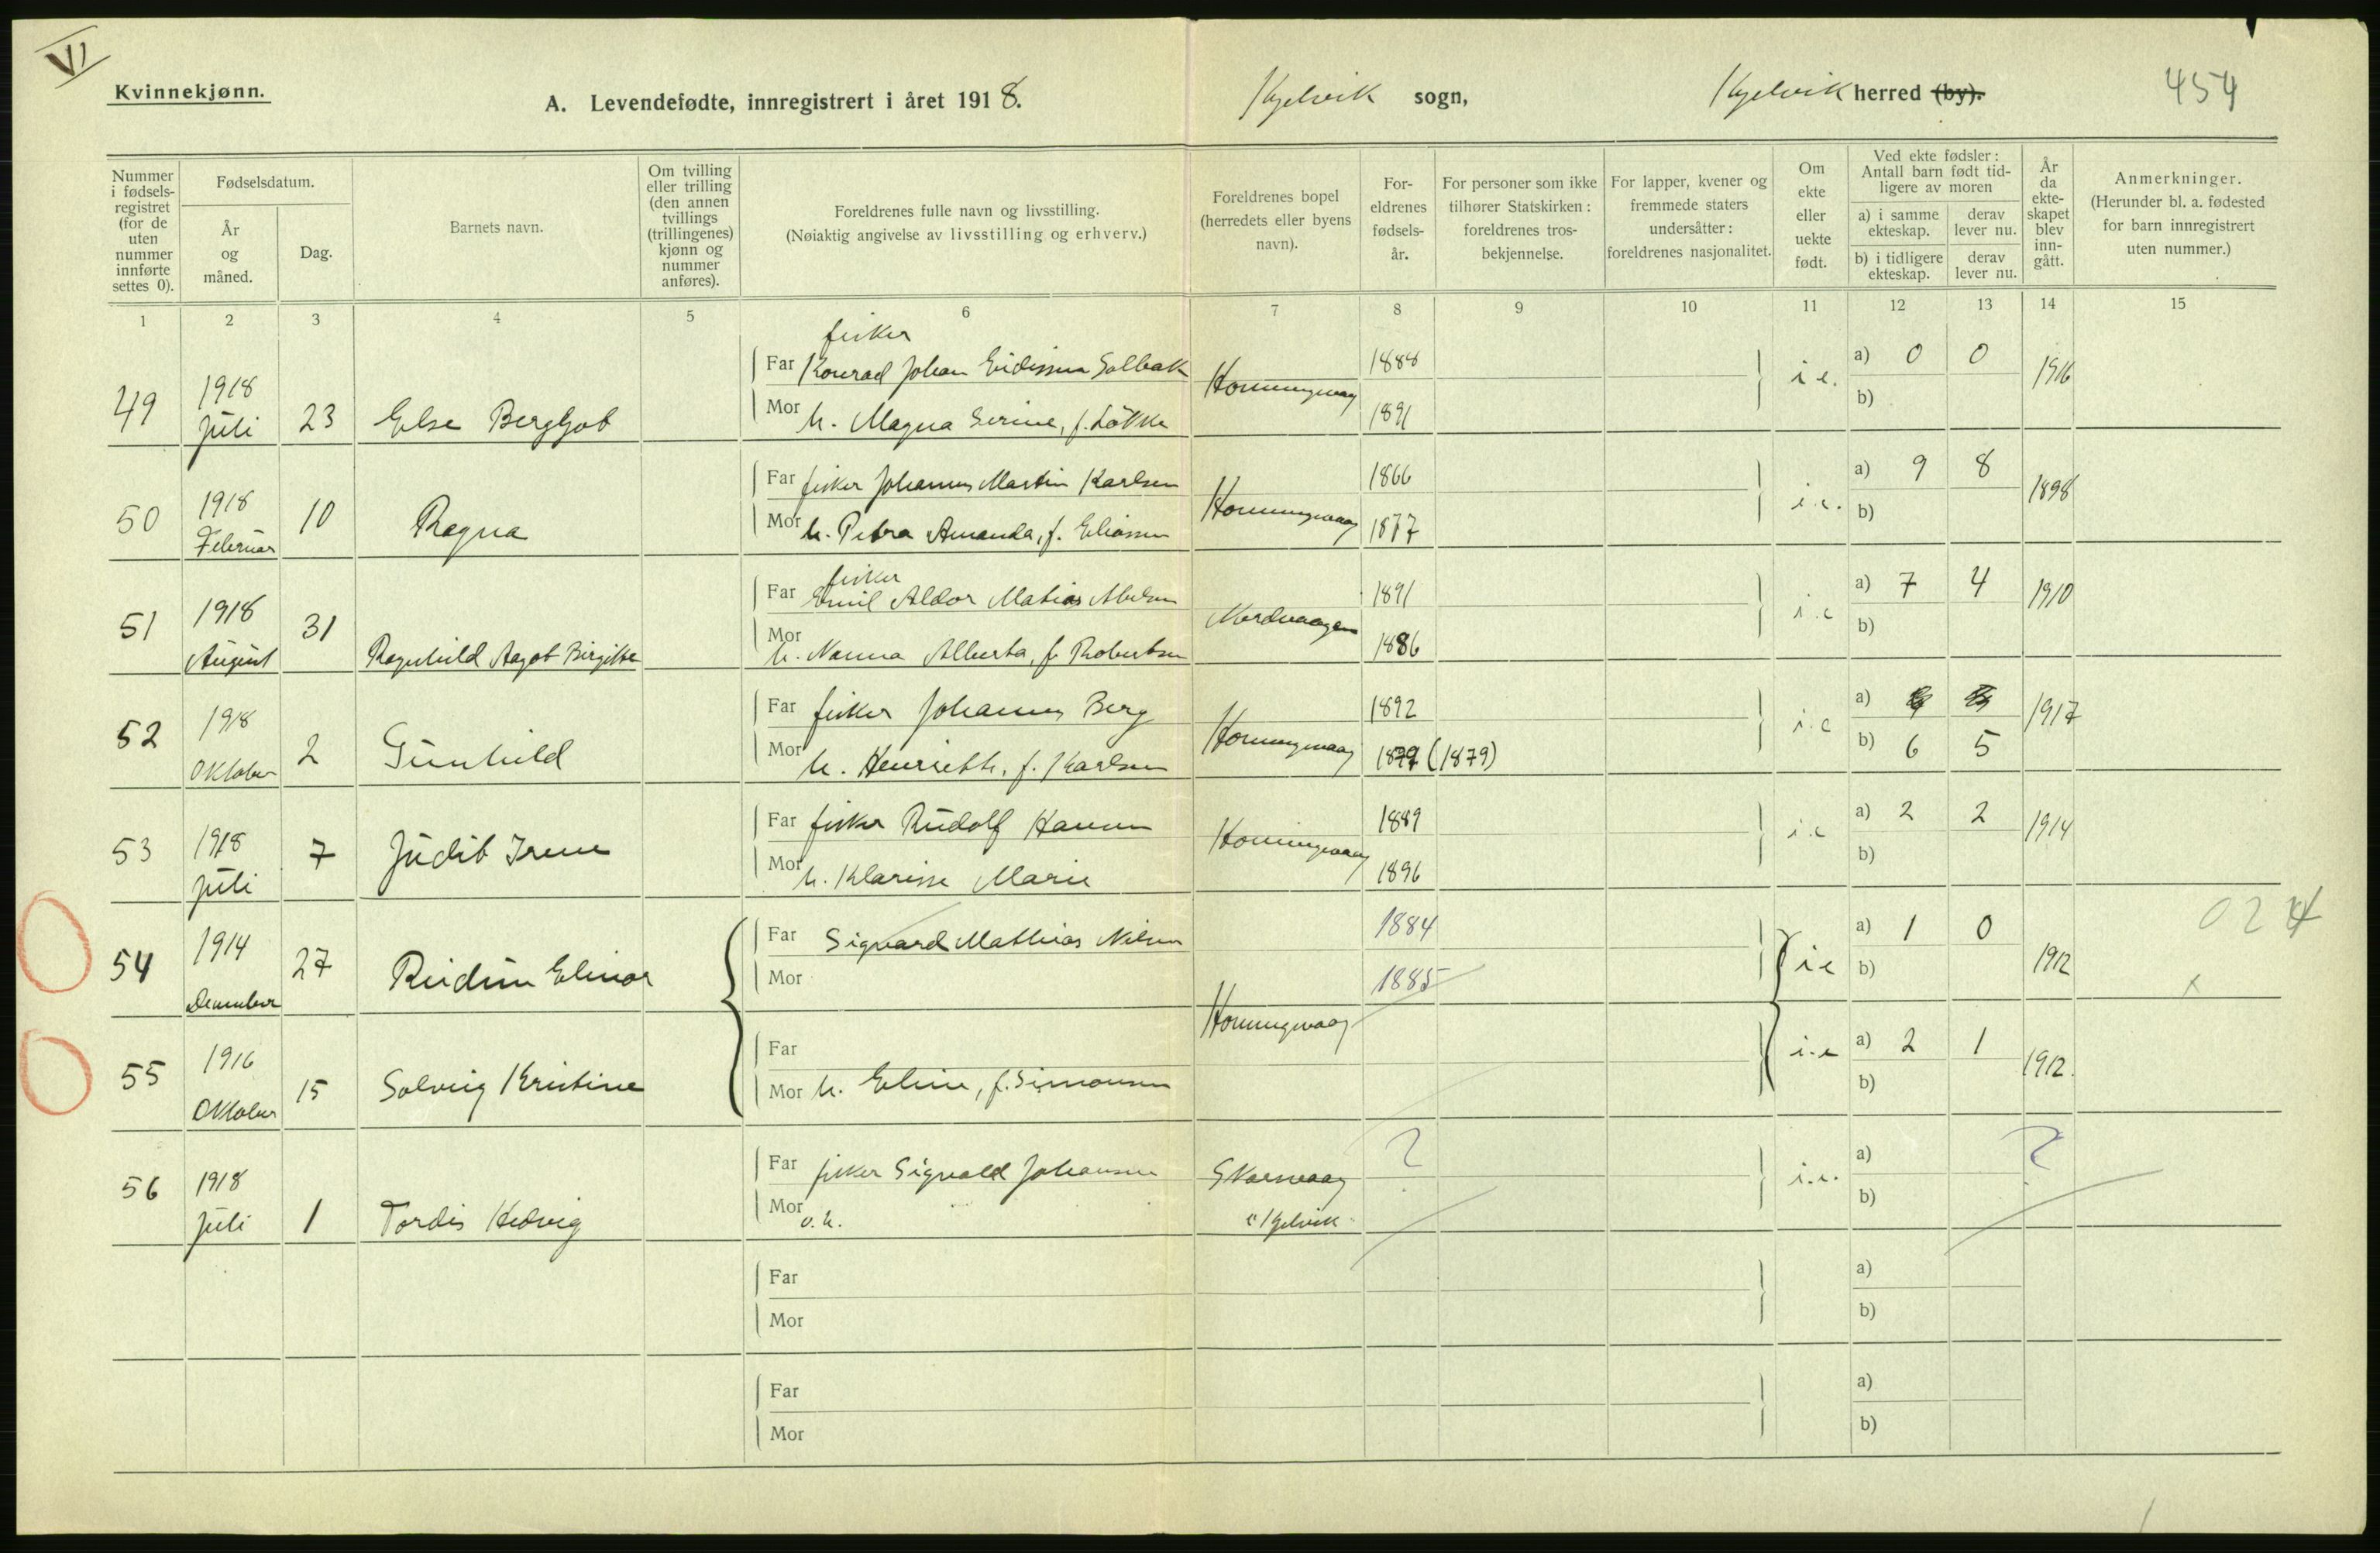 VI
Kvinnekjønn.
A. Levendefødte, innregistrert i året 1918.
Kjelvik sogn,
Kjelvik herred (by).
454
Nummer i fødsels-registret (for de uten nummer innførte settes 0).
Fødselsdatum.
År og måned.
Dag.
Barnets navn.
Om tvilling eller trilling (den annen tvillings (trillingenes) kjønn og nummer anføres).
Foreldrenes fulle navn og livsstilling.
(Nøiaktig angivelse av livsstilling og erhverv.)
Foreldrenes bopel (herredets eller byens navn).
For-eldrenes fødsels-år.
For personer som ikke tilhører Statskirken: foreldrenes tros-bekjennelse.
For lapper, kvener og fremmede staters undersåtter: foreldrenes nasjonalitet.
Om ekte eller uekte født.
Ved ekte fødsler: Antall barn født tid-ligere av moren
a) i samme ekteskap.
derav lever nu.
b) i tidligere ekteskap.
derav lever nu.
År da ekte-skapet blev inn-gått.
Anmerkninger.
(Herunder bl. a. fødested for barn innregistrert uten nummer.)
1 2 3 4 5 6 7 8 9 10 11 12 13 14 15
fisker
49 1918 Juli 23 Else Bergljot
Far Konrad Johan Eidissen Solbakk Honningsvaag 1888 i e. a) 0 0 1916
Mor h. Magna Serine, f. Løkke 1891 b)
50 1918 Februar 10 Ragna
Far fisker Johannes Martin Karlsen Honningsvaag 1866 i.e. a) 9 8 1898
Mor h. Petra Amanda, f. Eliassen 1877 b)
fisker
51 1918 August 31 Ragnhild Aagot Birgitte
Far Emil Aldor Matias Abelsen Nordvaagen 1891 i.e a) 7 4 1910
Mor h. Nanna Alberta, f. Robertsen 1886 b)
52 1918 Oktober 2 Gunhild
Far fisker Johannes Berg Honningsvaag 1892 i.e a) 1917
Mor h. Henriette, f. Karlsen (1879) b) 6 5
53 1918 Juli 7 Judit Irene
Far fisker Rudolf Hansen Honningsvaag 1889 i.e a) 2 2 1914
Mor h. Klarisse Marie 1896 b)
54 1914 Desember 27 Reidun Elinor
Far Sigvard Mathias Nilsen 1884 i e a) 1 0 1912 02
Mor 1885 b) x
Honningsvaag
55 1916 Oktober 15 Solveig Kristine
Far i.e a) 2 1 1912.
Mor h. Eline, f. Simonsen b)
56 1918 Juli 1 Tordis Hedvig
Far fisker Sigvald Johansen Skarsvaag ? i.e. a) ?
Mor o.h. i Kjelvik b)
Far a)
Mor b)
Far a)
Mor b)